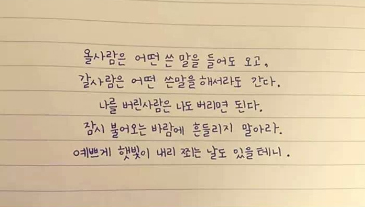 올사람은 어떤 쓴 말을 들어도 오고,
갈사람은 어떤 쓴말을 해서라도 간다.
나를 버린사람은 나도 버리면 된다.
잠시 불어오는 바람에 흔들리지 말아라.
예쁘게 햇빛이 내리 쬐는 날도 있을테니.